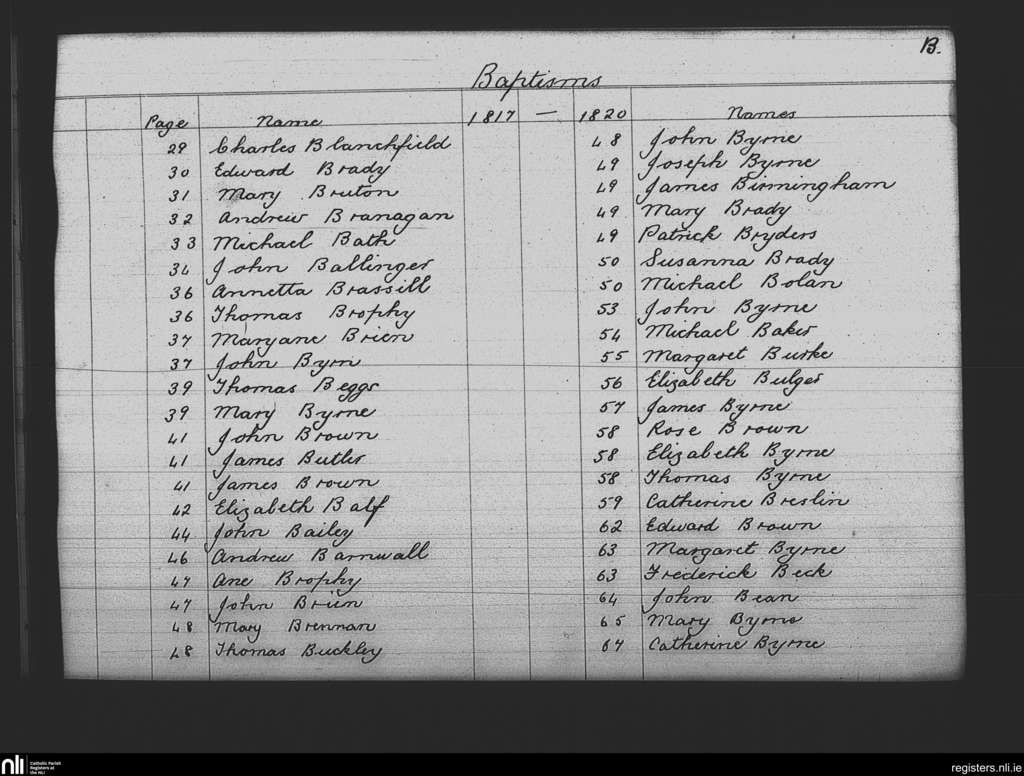 B.
Baptisms
Page Name 1817 — 1820 Names
29 Charles Blanchfield
30 Edward Brady
31 Mary Bruton
32 Andrew Branagan
33 Michael Bath
34 John Ballinger
36 Annetta Brassill
36 Thomas Brophy
37 Maryane Brien
37 John Byrn
39 Thomas Beggs
39 Mary Byrne
41 John Brown
41 James Butler
41 James Brown
42 Elizabeth Balf
44 John Bailey
46 Andrew Barnwall
47 Ane Brophy
47 John Brien
48 Mary Brennan
48 Thomas Buckley
48 John Byrne
49 Joseph Byrne
49 James Birmingham
49 Mary Brady
49 Patrick Bryders
50 Susanna Brady
50 Michael Bolan
53 John Byrne
54 Michael Baker
55 Margaret Burke
56 Elizabeth Bulger
57 James Byrne
58 Rose Brown
58 Elizabeth Byrne
58 Thomas Byrne
59 Catherine Breslin
62 Edward Brown
63 Margaret Byrne
63 Frederick Beck
64 John Bean
65 Mary Byrne
67 Catherine Byrne
nli
Catholic Parish
Registers at
the NLI
registers.nli.ie